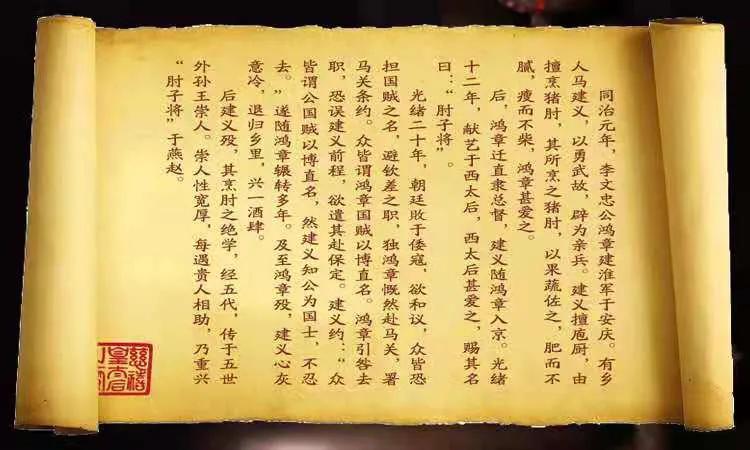 同治元年，李文忠公鸿章建淮军于安庆。有乡
人马建义，以勇武故，辟为亲兵。建义擅庖厨，由
擅烹猪肘，其所烹之猪肘，以果蔬佐之，肥而不
腻，瘦而不柴，鸿章甚爱之。
后，鸿章迁直隶总督，建义随鸿章入京。光绪
十二年，献艺于西太后，西太后甚爱之，赐其名
曰：“肘子将”。
光绪二十年，朝廷败于倭寇，欲和议，众皆恐
担国贼之名，避钦差之职，独鸿章慨然赴马关，署
马关条约。众皆谓鸿章国贼以博直名。鸿章引咎去
职，恐误建义前程，欲遣其赴保定。建义约：“众
皆谓公国贼以博直名，然建义知公为国士，不忍
去。”遂随鸿章辗转多年。及至鸿章殁，建义心灰
意冷，退归乡里，兴一酒肆。
后建义殁，其烹肘之绝学，经五代，传于五世
外孙王崇人。崇人性宽厚，每遇贵人相助，乃重兴
“肘子将”于燕赵。
慈禧
皇